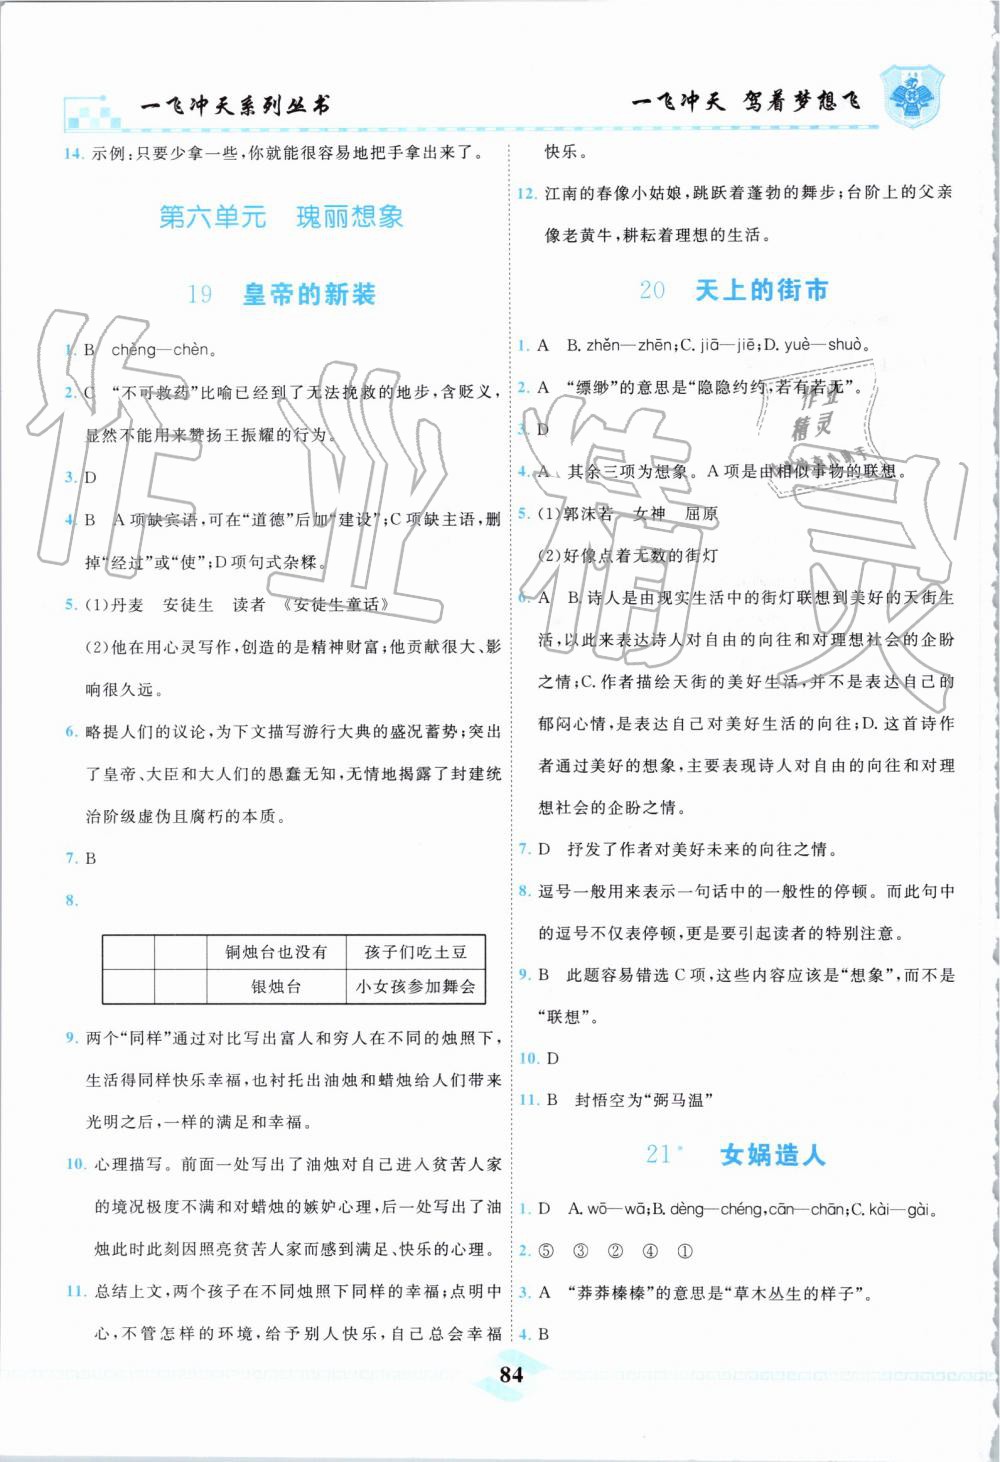 一飞冲天系列丛书
一飞冲天 驾着梦想飞
14. 示例：只要少拿一些，你就能很容易地把手拿出来了。
第六单元 瑰丽想象
19 皇帝的新装
1. B chèng—chèn。
2. C “不可救药”比喻已经到了无法挽救的地步，含贬义，
显然不能用来赞扬王振耀的行为。
3. D
4. B A项缺宾语，可在“道德”后加“建设”；C项缺主语，删
掉“经过”或“使”；D项句式杂糅。
5. (1)丹麦 安徒生 读者 《安徒生童话》
(2)他在用心灵写作，创造的是精神财富；他贡献很大、影
响很久远。
6. 略提人们的议论，为下文描写游行大典的盛况蓄势；突出
了皇帝、大臣和大人们的愚蠢无知，无情地揭露了封建统
治阶级虚伪且腐朽的本质。
7. B
8.
铜烛台也没有 孩子们吃土豆
银烛台 小女孩参加舞会
9. 两个“同样”通过对比写出富人和穷人在不同的烛照下，
生活得同样快乐幸福，也衬托出油烛和蜡烛给人们带来
光明之后，一样的满足和幸福。
10. 心理描写。前面一处写出了油烛对自己进入贫苦人家
的境况极度不满和对蜡烛的嫉妒心理，后面一处写出油
烛此时此刻因照亮贫苦人家而感到满足、快乐的心理。
11. 总结上文，两个孩子在不同烛照下同样的幸福；点明中
心，不管怎样的环境，给予别人快乐，自己总会幸福
快乐。
12. 江南的春像小姑娘，跳跃着蓬勃的舞步；台阶上的父亲
像老黄牛，耕耘着理想的生活。
20 天上的街市
1. A B.zhěn—zhēn；C.jiā—jiē；D.yuè—shuò。
2. A “缥缈”的意思是“隐隐约约，若有若无”。
3. D
4. A 其余三项为想象。A项是由相似事物的联想。
5. (1)郭沫若 女神 屈原
(2)好像点着无数的街灯
6. A B.诗人是由现实生活中的街灯联想到美好的天街生
活，以此来表达诗人对自由的向往和对理想社会的企盼
之情；C.作者描绘天街的美好生活，并不是表达自己的
郁闷心情，是表达自己对美好生活的向往；D.这首诗作
者通过美好的想象，主要表现诗人对自由的向往和对理
想社会的企盼之情。
7. D 抒发了作者对美好未来的向往之情。
8. 逗号一般用来表示一句话中的一般性的停顿。而此句中
的逗号不仅表停顿，更是要引起读者的特别注意。
9. B 此题容易错选C项，这些内容应该是“想象”，而不是
“联想”。
10. D
11. B 封悟空为“弼马温”
21* 女娲造人
1. D A.wō—wā；B.dèng—chéng，cān—chān；C.kài—gài。
2. ⑤ ③ ② ④ ①
3. A “莽莽榛榛”的意思是“草木丛生的样子”。
4. B
84
作业精灵
作业
精灵